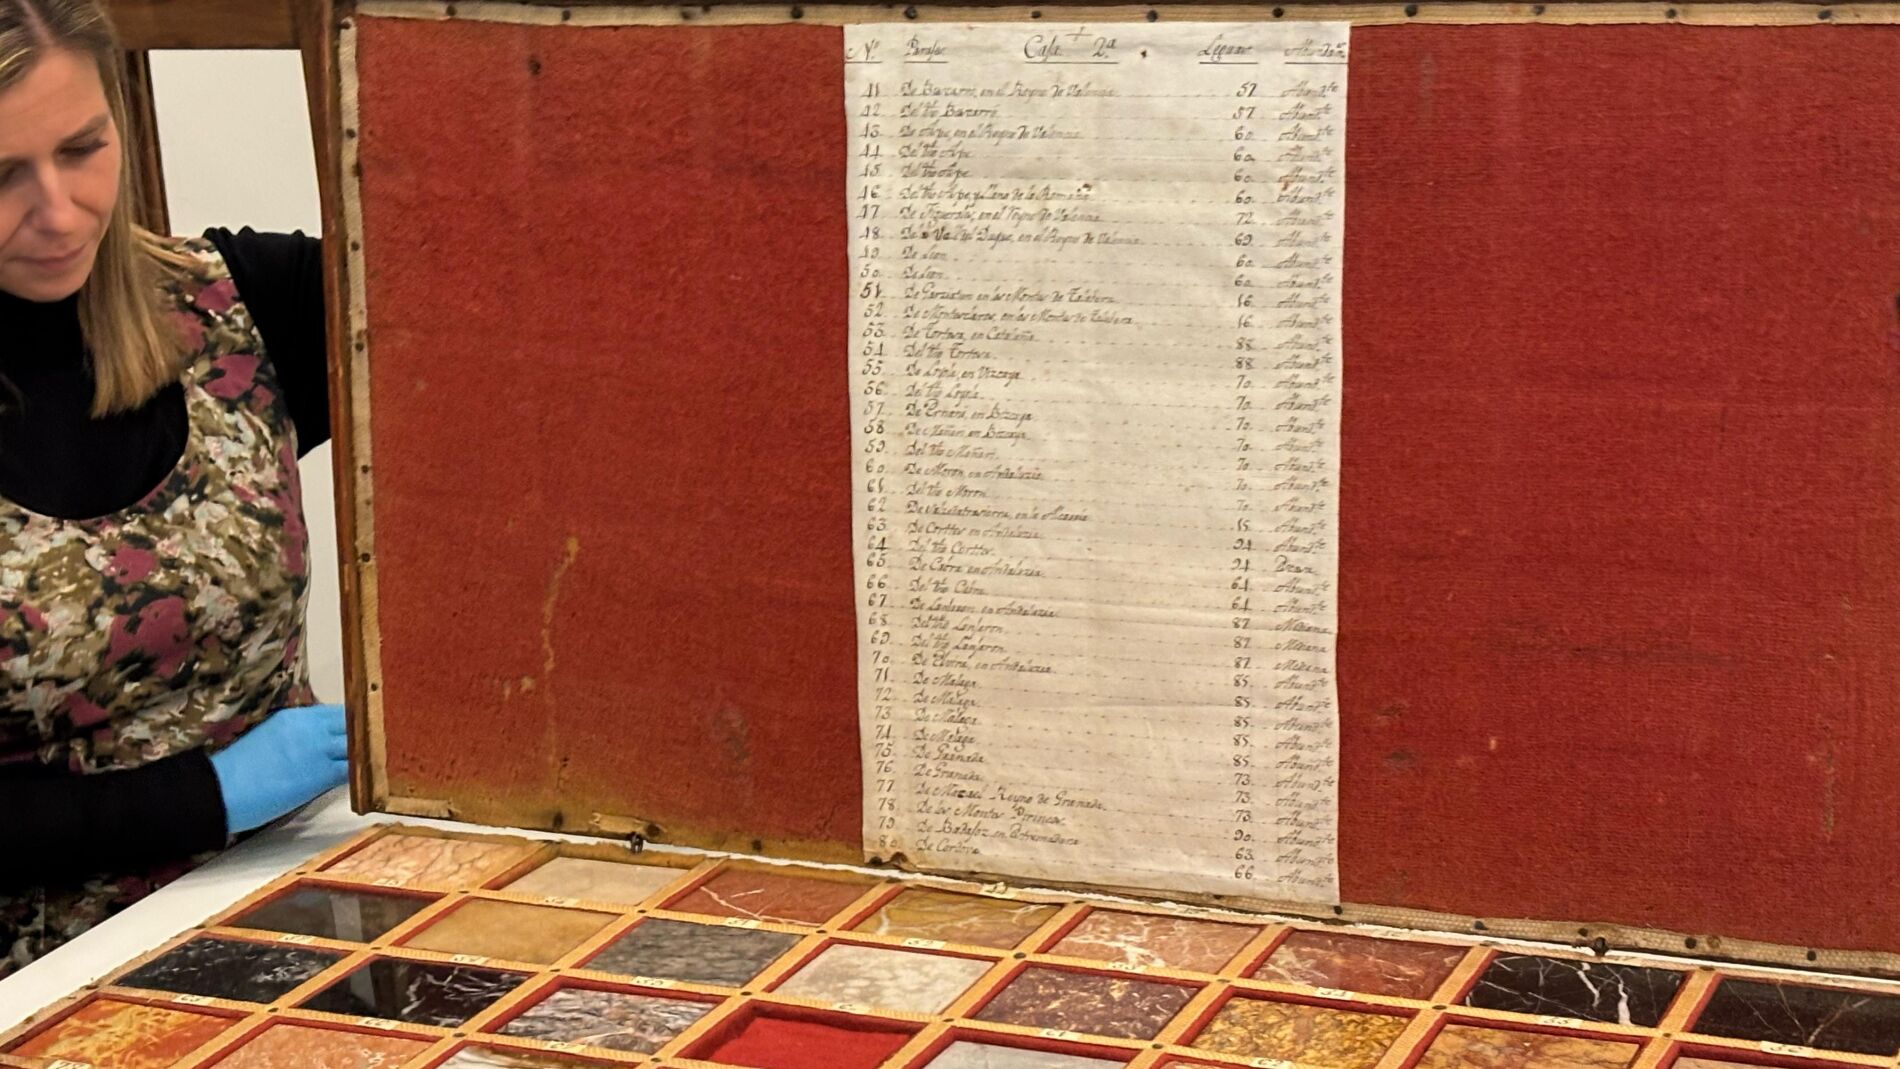 N.º Parajes Caja 2ª Leguas Abundan.ª
41 De Buzarró, en el Reyno de Valencia 57 Abund.te
42 Del tho Buzarró 57 Abund.te
43 De Aspe, en el Reyno de Valencia 60 Abund.te
44 Del tho Aspe 60 Abund.te
45 Del tho Aspe 60 Abund.te
46 Del tho Aspe, y Llano de la Romana 60 Abund.te
47 De en el Reyno de Valencia 72 Abund.te
48 Del Vall del Duque, en el Reyno de Valencia 69 Abund.te
49 De Leon 60 Abund.te
50 De Leon 60 Abund.te
51 De en los Montes de Talabera 16 Abund.te
52 De Montesclaros, en los Montes de Talabera 16 Abund.te
53 De Tortosa, en Cataluña 88 Abund.te
54 Del tho Tortosa 88 Abund.te
55 De en Vizcaya 70 Abund.te
56 Del tho 70 Abund.te
57 De Ernani, en Bizcaya 70 Abund.te
58 De Mañari en Bizcaya 70 Abund.te
59 Del tho Mañari 70 Abund.te
60 De Moron en Andaluzia 70 Abund.te
61 Del tho Moron 70 Abund.te
62 De en la Alcarria 15 Abund.te
63 De Cortes en Andaluzia 94 Abund.te
64 Del tho Cortes 94
65 De Cabra en Andaluzia 64 Abund.te
66 Del tho Cabra 64 Abund.te
67 De Lanjaron en Andaluzia 87 Mediana
68 Del tho Lanjaron 87 Mediana
69 Del tho Lanjaron 87 Mediana
70 De Elvira, en Andaluzia 85 Abund.te
71 De Malaga 85 Abund.te
72 De Malaga 85 Abund.te
73 De Malaga 85 Abund.te
74 De Malaga 85 Abund.te
75 De Granada 73 Abund.te
76 De Granada 73 Abund.te
77 De Macael Reyno de Granada 73 Abund.te
78 De los Montes Pirineos 90 Abund.te
79 De Badajoz en Estremadura 63 Abund.te
80 De Cordova 66 Abund.te